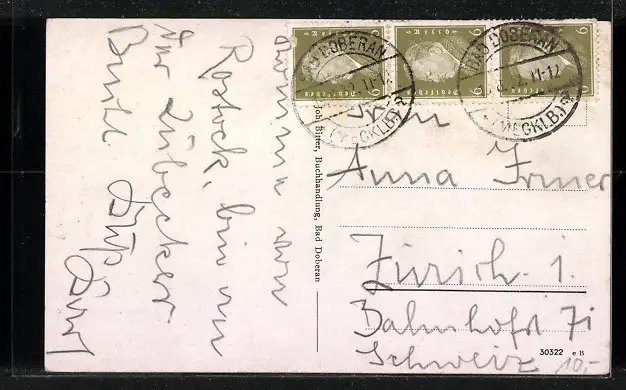 Komme von
Rostock, bin in
der Lübecker
Bucht.
Joh. Bitter, Buchhandlung, Bad Doberan
BAD DOBERAN
11-12
(MECKLB)
BAD DOBERAN
11-12
(MECKLB)
6
6
6
Deutsches
Deutsches
Deutsches
Anna Irmer
Zürich. 1.
Bahnhofst 71
Schweiz
30322 e B
10,-